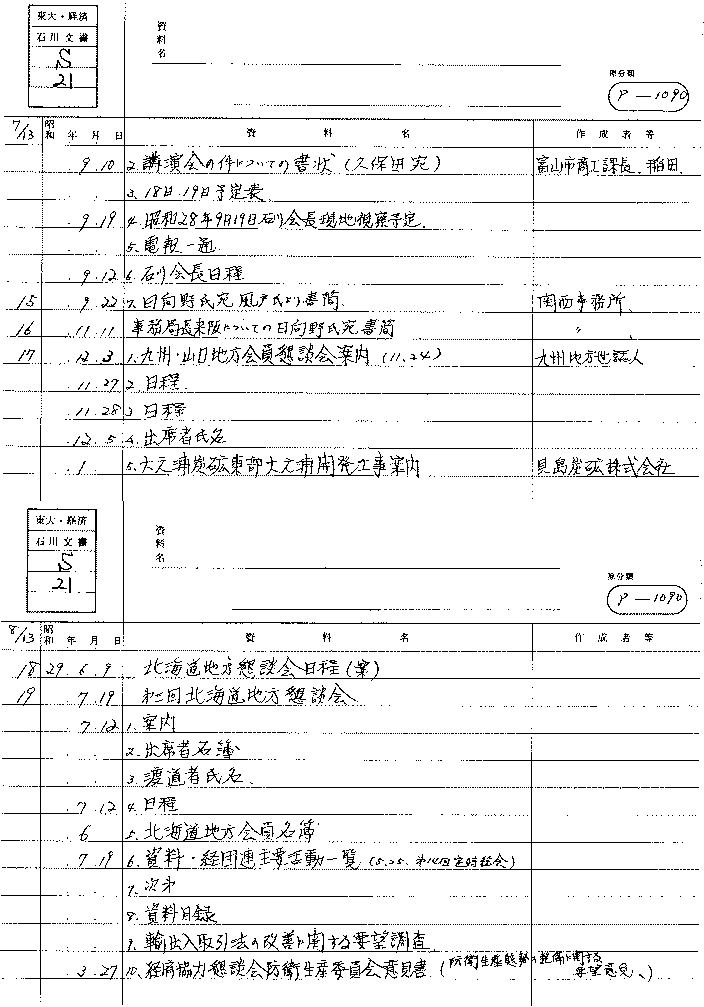 東大・経済
石川文書
S
21
資料名
原分類
P-1090
7/13 昭和 年 月 日 資料名 作成者等
9.10 2.講演会の件についての書状(久保田宛) 富山市商工課長、稲田
3.18日.19日予定表
9.19 4.昭和28年9月19日石川会長現地視察予定.
5.電報一通
9.12 6.石川会長日程
15 9.22 7.日向野氏宛 風戸氏より書簡 関西事務所、
16 11.11 事務局長来阪についての日向野氏宛書簡 〃
17 12.3 1.九州・山口地方会員懇談会案内(11.24) 九州地方世話人
11.27 2.日程.
11.28 3.日程
12.5 4.出席者氏名
.1 5.大之浦炭砿東部大之浦開発工事案内 貝島炭砿株式会社
東大・経済
石川文書
S
21
資料名
原分類
P-1090
8/13 昭和 年 月 日 資料名 作成者等
18 29 6.9 北海道地方懇談会日程(案)
19 7.19 第二回北海道地方懇談会
7.12 1.案内
2.出席者名簿
3.渡道者氏名.
7.12 4.日程
6 5.北海道地方会員名簿
7.19 6.資料・経団連主要活動一覧(5.25.第14回定時総会)
7.次第
8.資料目録
9.輸出入取引法の改善に関する要望調査
3.27 10.経済協力懇談会防衛生産委員会意見書(防衛生産態勢の整備に関する要望意見、)